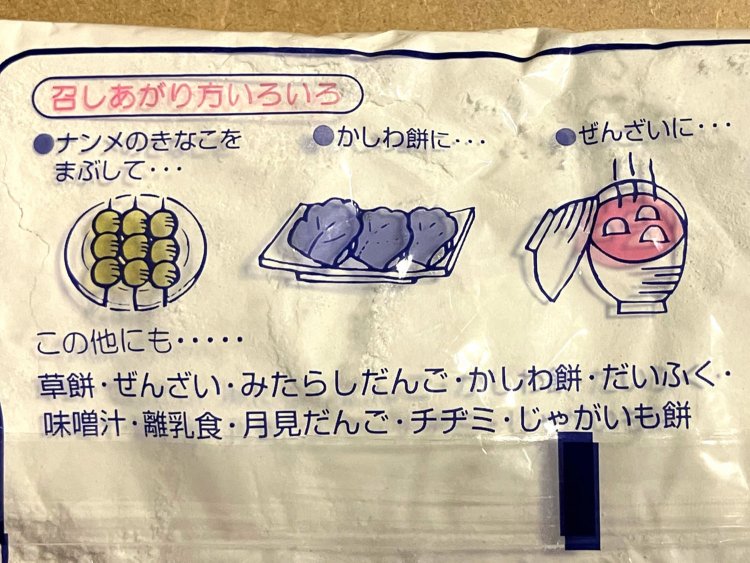 召しあがり方いろいろ
●ナンメのきなこを
まぶして・・・
●かしわ餅に・・・
●ぜんざいに・・・
この他にも・・・・・
草餅・ぜんざい・みたらしだんご・かしわ餅・だいふく・
味噌汁・離乳食・月見だんご・チヂミ・じゃがいも餅